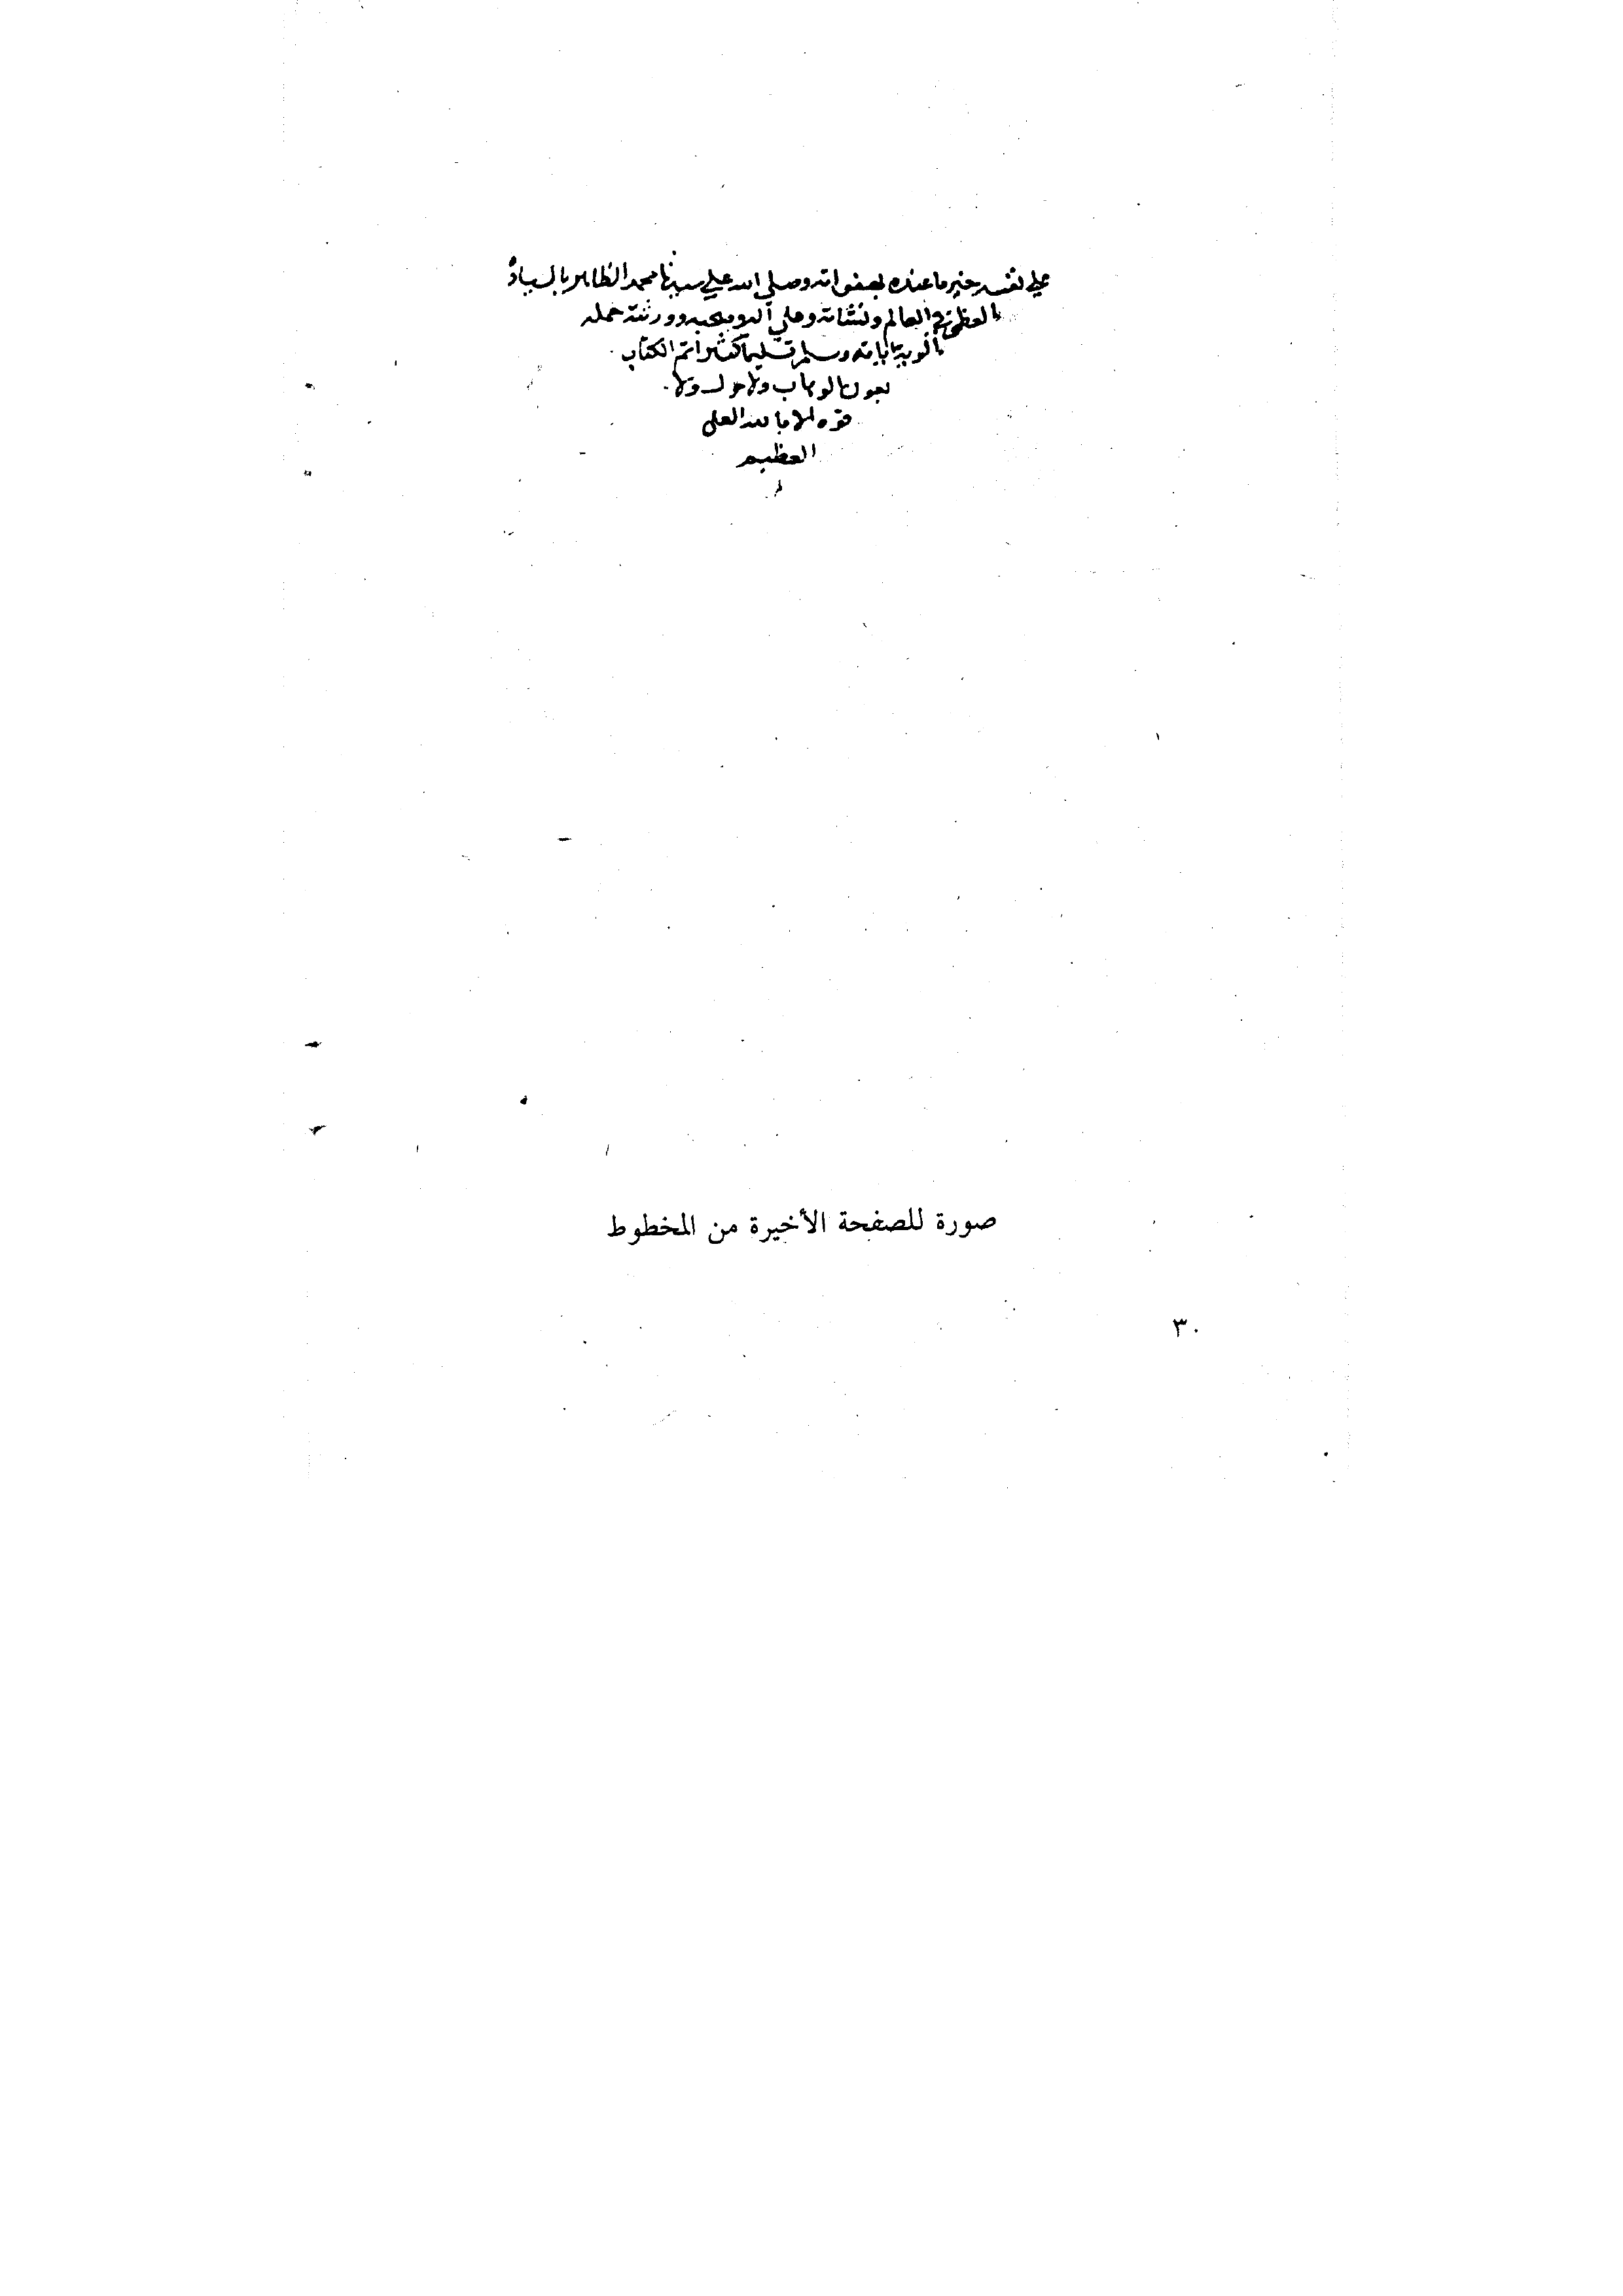 علي نفسه خير ما عنده بهفواته وصلي الله علي سيدنا محمد الظاهر بالسيادة
العظمي في العالم ونشاته وعلي اله وصحبه وورثته حمله
وسلم تسليما كثيرا تم الكتاب
بعون الوهاب ولا حول ولا
قوه الا بالله العلي
العظيم
م
صورة للصفحة الأخيرة من المخطوط
٣٠